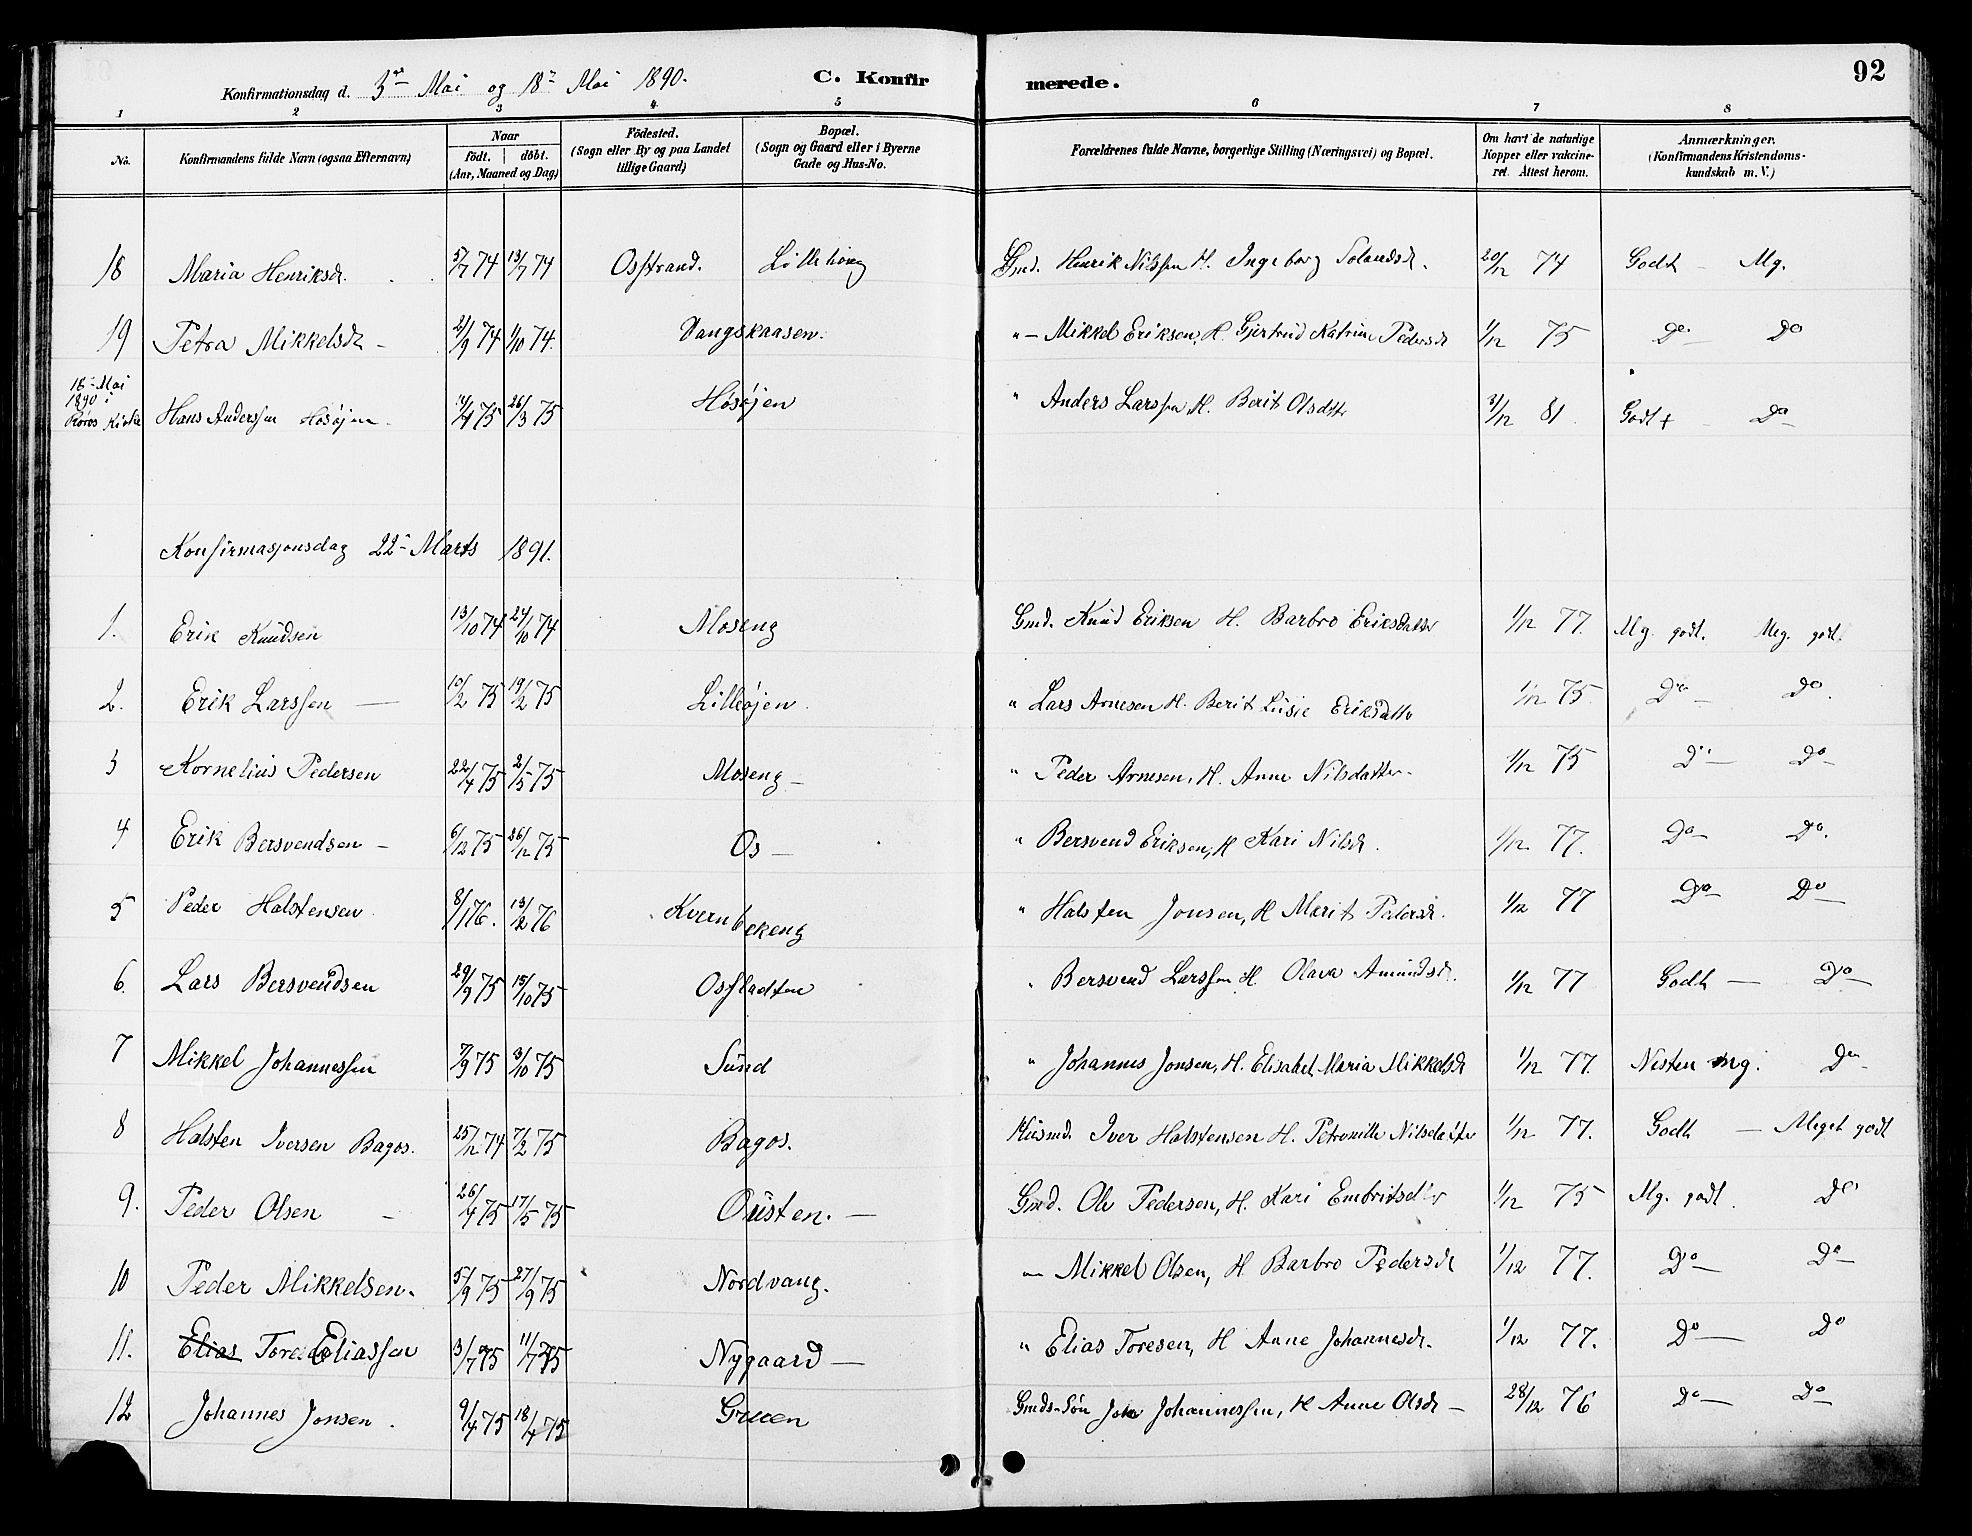 92
Konfirmationsdag d. 3die Mai og 18de Mai 1890. C. Konfirmerede.
1 2 3 4 5 6 7 8
No. Konfirmandens fulde Navn (ogsaa Efternavn) Naar födt. döbt. (Aar, Maaned og Dag) Födested. (Sogn eller By og paa Landet tillige Gaard) Bopæl. (Sogn og Gaard eller i Byerne Gade og Hus-No. Forældrenes fulde Navne, borgerlige Stilling (Næringsvei) og Bopæl. Om havt de naturlige Kopper eller vakcineret. Attest herom. Anmærkninger. (Konfirmandens Kristendomskundskab m. V.)
18 Maria Henriksdr. 5/7 74 13/7 74 Osstrand. Gmd. Henrik Nilssen H. Ingeborg 20/12 74 Godt – Mg.
19 Petra Mikkelsdr – 21/9 74 1/10 74. Vangskaasen. "– Mikkel Eriksen, H. Gjertrud Katrine Pedersdr 1/12 75 Do – Do
18de Mai 1890 i Röros Kirke Hans Anderssen Hösöjen. /4 75 26/3 75 Hösöjen " Anders Larssen H. Berit Olsdtr /12 81. Godt – Do
Konfirmasjonsdag 22de Marts 1891.
1. Erik Knudsen 13/10 74 24/10 74 Moseng Gmd. Knud Eriksen H. Barbro Eriksdatter 1/12 77. Mg. godt. Meg. godt.
2. Erik Larssen – 10/2 75 19/2 75 Lilleöjen. " Lars Arnesen H. Berit Lusie Eriksdatter 1/12 75. Do – Do.
3 Kornelius Pedersen 22/4 75 2/5 75 Moseng – " Peder Arnesen, H. Anne Nilsdatter. 1/12 75 Do – Do –
4 Erik Bersvendsen – 6/12 75 26/12 75 Os – " Bersvend Eriksen, H Kari Nilsdr. 1/12. 77. Do – Do.
5 Peder Halstensen 8/1 76. 13/2 76 Kvernbekeng " Halsten Jonsen, H Marit Pedersdr. 1/12 77 Do – Do –
6. Lars Bersvendsen 29/9 75 15/10 75 Osfladten " Bersvend Larssen H. Olava Amundsdr. 1/12 77 Godt – Do –
7 Mikkel Johannessen 7/9 75 3/10 75 Sund " Johannes Jonsen, H. Elisabet Maria Mikkelsdr 1/12 77. Nesten mg. Do –
8 Halsten Iversen Bagos. 25/12 74 7/2 75 Bagos. Husmd. Iver Halstensen H. Petronille Nilsdatter 1/12 77. Godt – Meget godt
9. Peder Olsen – 26/4 75 17/5 75 Ousten. – Gmd. Ole Pedersen, H. Kari Embritsdtr 1/12 75 Mg. godt. Do
10 Peder Mikkelsen. 5/9 75 27/9 75 Nordvang. "– Mikkel Olsen, H Barbro Pedersdr 1/12 77. Do – Do –
11. Elias Tore Eliassen 3/7 75 11/7 75 Nygaard – " Elias Toresen, H Anne Johannesdr. 1/12 77. Do – Do
12 Johannes Jonsen. 9/4 75 18/4 75 Gruen Gmds-Sön Jon Johannessen, H Anne Olsdr – 28/12 76 Do – Do –